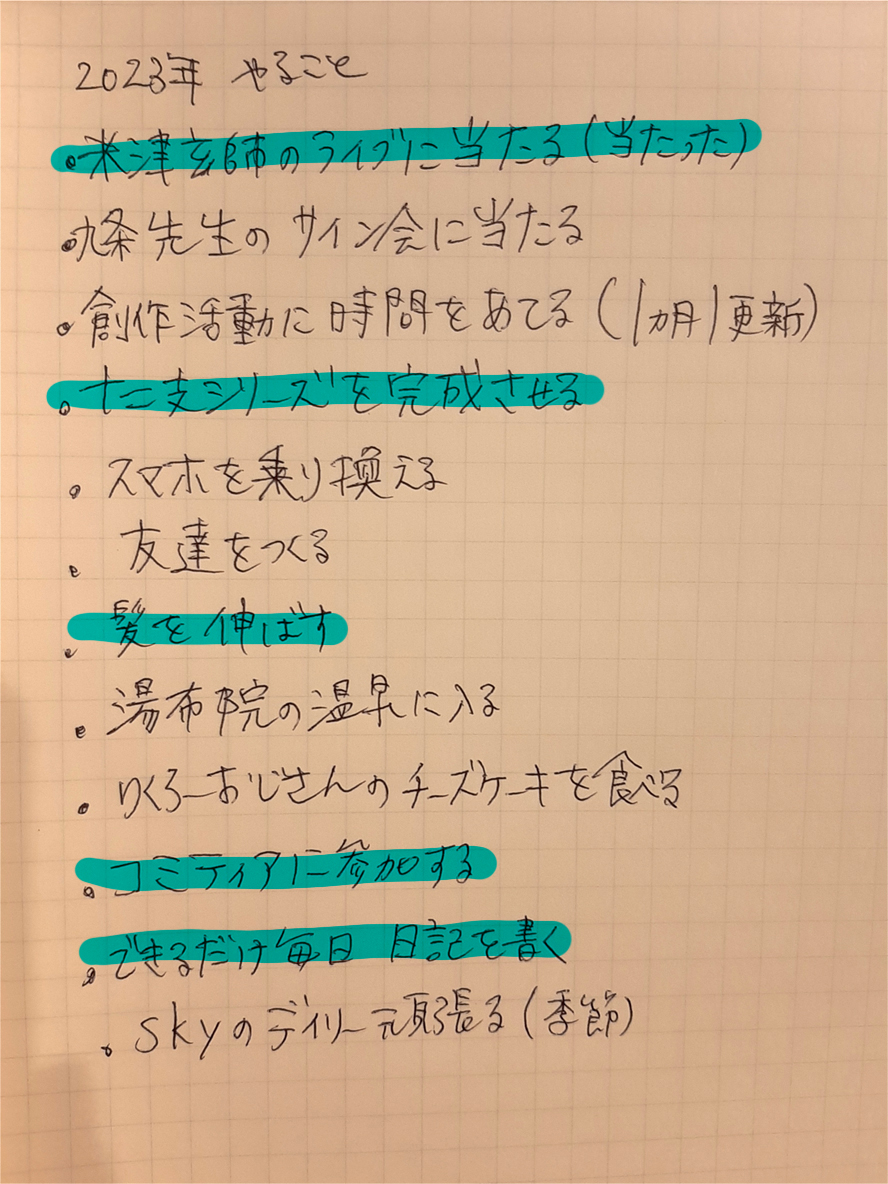 2023年 やること
・米津玄師のライブに当たる(当たった)
・九条先生のサイン会に当たる
・創作活動に時間をあてる(1ヵ月1更新)
・十二支シリーズを完成させる
・スマホを乗り換える
・友達をつくる
・髪を伸ばす
・湯布院の温泉に入る
・りくろーおじさんのチーズケーキを食べる
・コミティアに参加する
・できるだけ毎日 日記を書く
・skyのデイリー頑張る(季節)